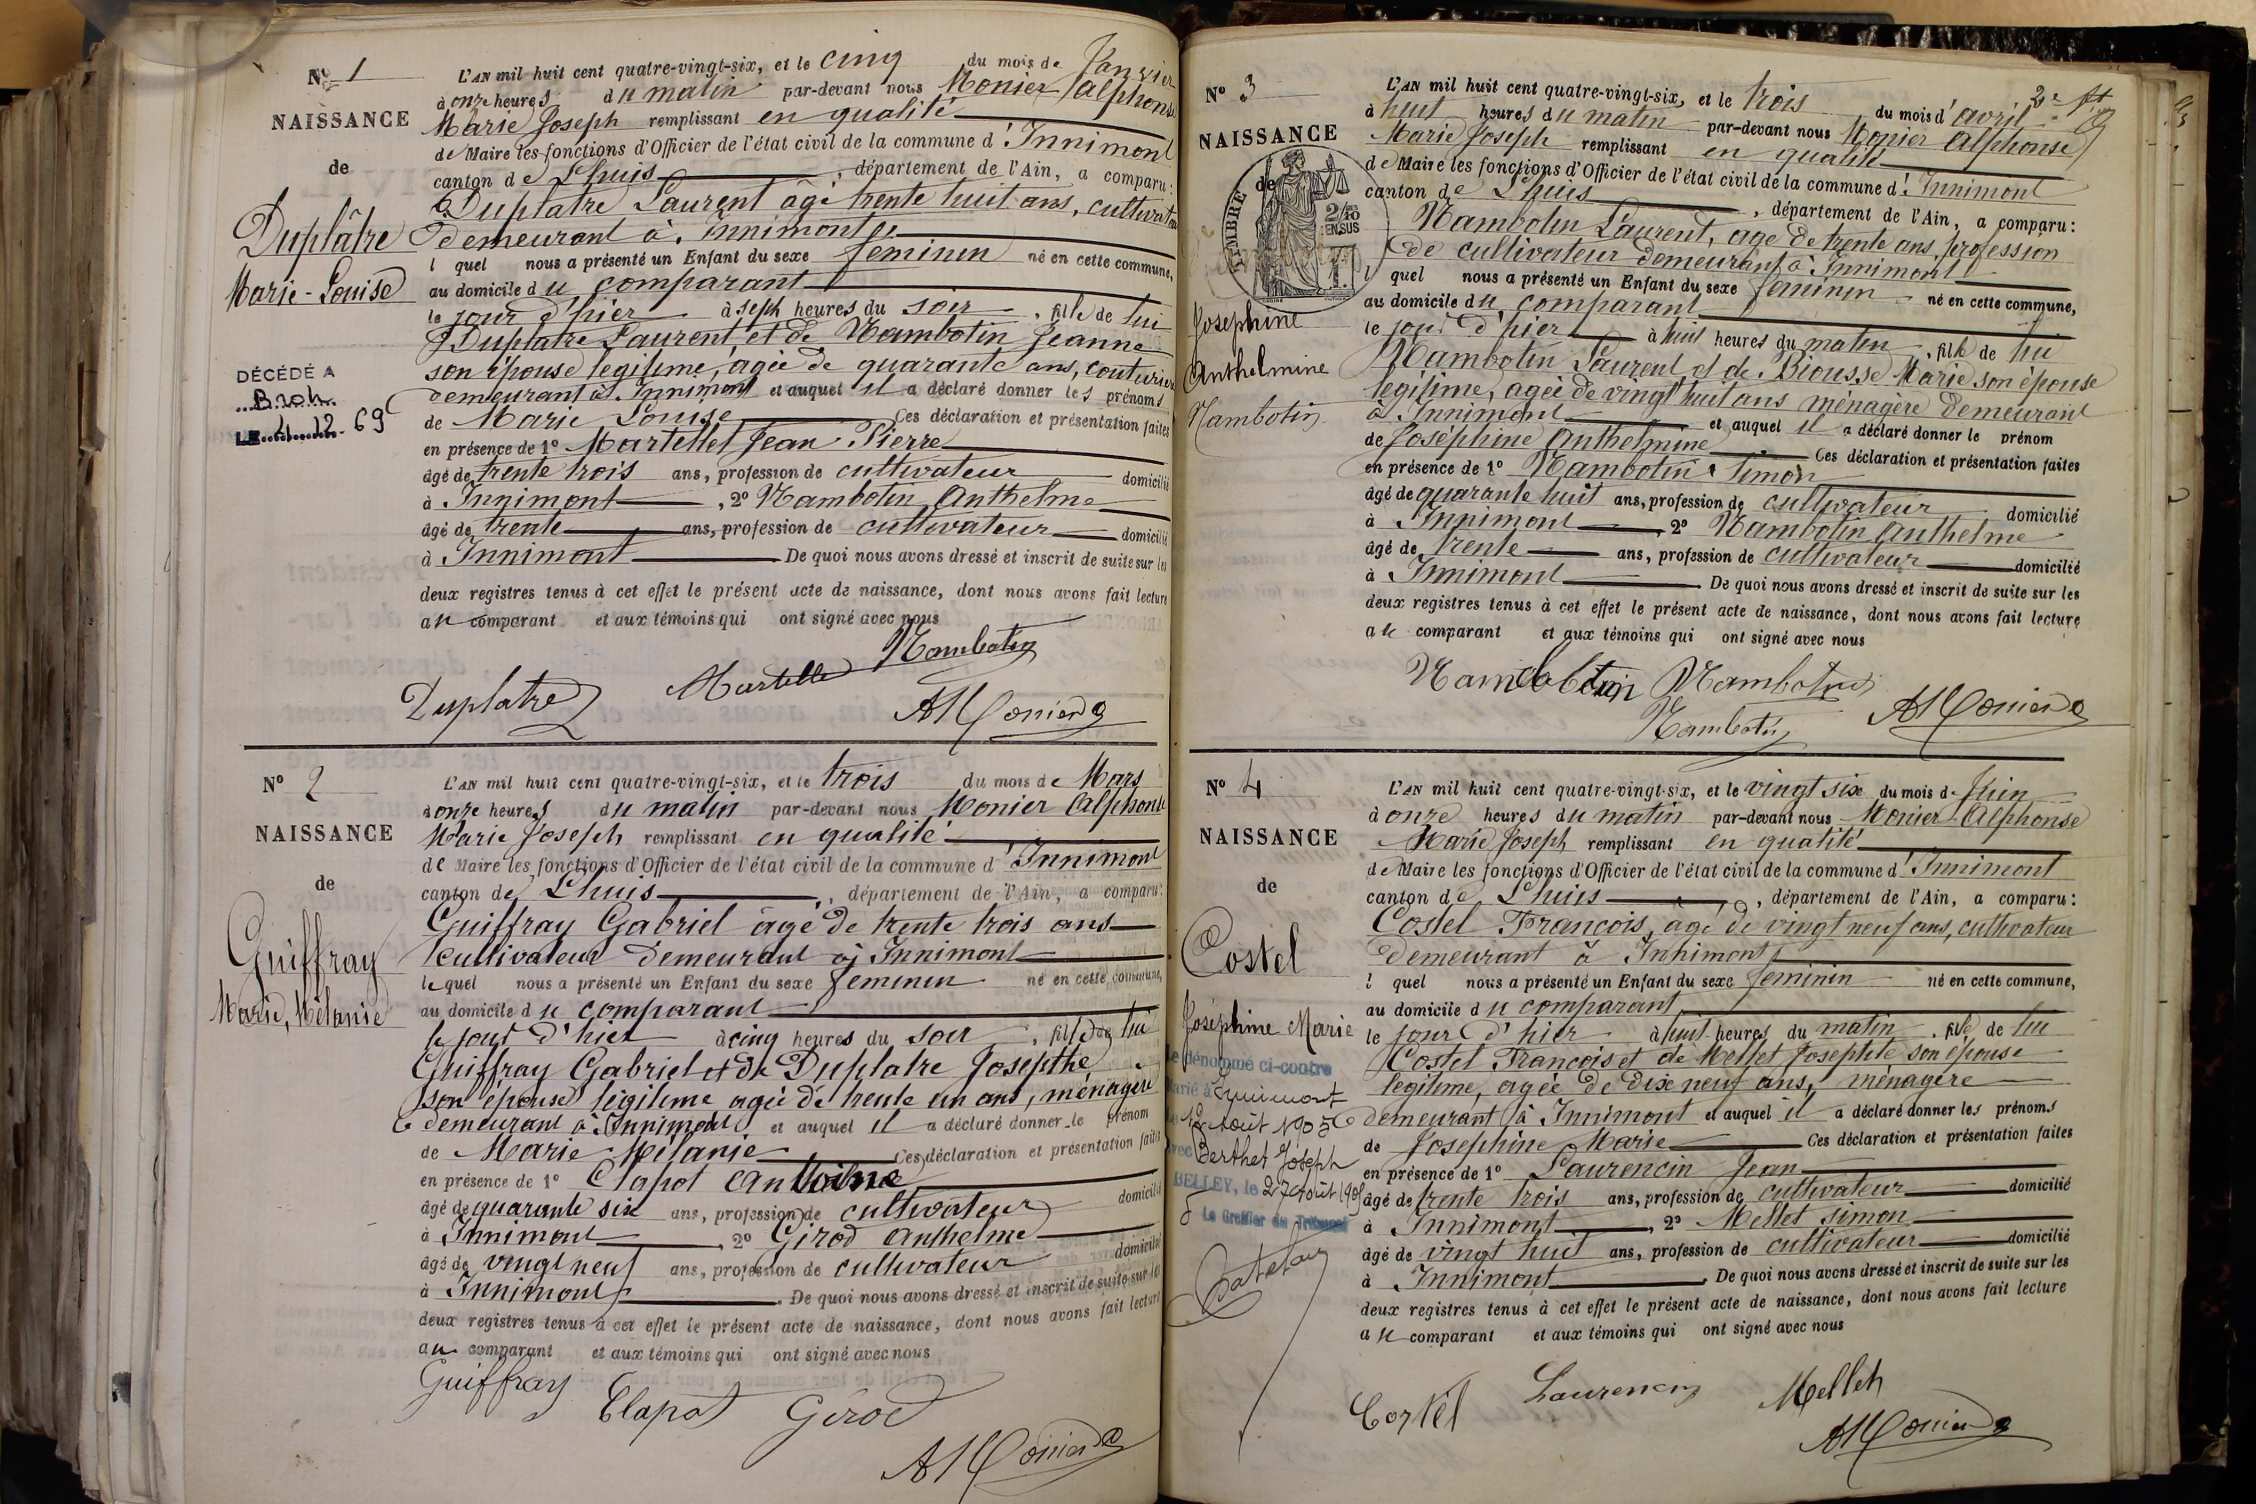 Nº 1
NAISSANCE
de
Duplâtre
Marie-Louise
DÉCÉDÉ A
Bron
LE 4.12.69
L'AN mil huit cent quatre-vingt-six, et le cinq du mois de Janvier
à onze heures du matin par-devant nous Monier Alphonse
Marie Joseph remplissant en qualité
de Maire les fonctions d'Officier de l'état civil de la commune d'Innimont
canton de Lhuis, département de l'Ain, a comparu:
Duplatre Laurent âgé trente huit ans, cultivateur
demeurant à Innimont
l quel nous a présenté un Enfant du sexe féminin né en cette commune,
au domicile du comparant
le jour d'hier à sept heures du soir, fille de lui
Duplatre Laurent et de Nambotin Jeanne
son épouse légitime, agée de quarante ans, couturière
demeurant à Innimont et auquel il a déclaré donner les prénoms
de Marie Louise Ces déclaration et présentation faites
en présence de 1º Martellet Jean Pierre
âgé de trente trois ans, profession de cultivateur domicilié
à Innimont, 2º Nambotin Anthelme
âgé de trente ans, profession de cultivateur domicilié
à Innimont De quoi nous avons dressé et inscrit de suite sur les
deux registres tenus à cet effet le présent acte de naissance, dont nous avons fait lecture
au comparant et aux témoins qui ont signé avec nous
Nambotin
Duplatre Martelle
AMonier
Nº 2
NAISSANCE
de
Guiffray
Marie, Mélanie
L'AN mil huit cent quatre-vingt-six, et le trois du mois de Mars
à onze heures du matin par-devant nous Monier Alphonse
Marie Joseph remplissant en qualité
de Maire les fonctions d'Officier de l'état civil de la commune d'Innimont
canton de Lhuis, département de l'Ain, a comparu:
Guiffray Gabriel âgé de trente trois ans
cultivateur demeurant à Innimont
lequel nous a présenté un Enfant du sexe féminin né en cette commune,
au domicile du comparant
le jour d'hier à cinq heures du soir, fille de lui
Guiffray Gabriel et de Duplatre Josepthe
son épouse légitime agée de trente un ans, ménagère
demeurant à Innimont et auquel il a déclaré donner le prénom
de Marie Mélanie Ces déclaration et présentation faites
en présence de 1º Clapot Antoine
âgé de quarante six ans, profession de cultivateur domicilié
à Innimont, 2º Girod Anthelme
âgé de vingt neuf ans, profession de cultivateur domicilié
à Innimont. De quoi nous avons dressé et inscrit de suite sur les
deux registres tenus à cet effet le présent acte de naissance, dont nous avons fait lecture
au comparant et aux témoins qui ont signé avec nous
Guiffray Clapot Girod
AMonier
Nº 3
NAISSANCE
de
TIMBRE
2/10
EN SUS
Josephine
Anthelmine
Nambotin
L'AN mil huit cent quatre-vingt-six, et le trois du mois d'avril
à huit heures du matin par-devant nous Monier Alphonse
Marie Joseph remplissant en qualité
de Maire les fonctions d'Officier de l'état civil de la commune d'Innimont
canton de Lhuis, département de l'Ain, a comparu:
Nambotin Laurent, age de trente ans, profession
de cultivateur demeurant à Innimont
l quel nous a présenté un Enfant du sexe féminin né en cette commune,
au domicile du comparant
le jour d'hier à huit heures du matin, fille de lui
Nambotin Laurent et de Biousse Marie son épouse
légitime, agée de vingt huit ans ménagère demeurant
à Innimont et auquel il a déclaré donner le prénom
de Joséphine Anthelmine Ces déclaration et présentation faites
en présence de 1º Nambotin Simon
âgé de quarante huit ans, profession de cultivateur domicilié
à Innimont, 2º Nambotin Anthelme
âgé de trente ans, profession de cultivateur domicilié
à Innimont. De quoi nous avons dressé et inscrit de suite sur les
deux registres tenus à cet effet le présent acte de naissance, dont nous avons fait lecture
au comparant et aux témoins qui ont signé avec nous
Nambotin Nambotin
Nambotin AMonier
Nº 4
NAISSANCE
de
Costel
Joséphine Marie
Le dénommé ci-contre
marié à Innimont
Août 1905
avec Berthet Joseph
BELLEY, le 27 août 1905
Le Greffier du Tribunal
L'AN mil huit cent quatre-vingt-six, et le vingt six du mois de Juin
à onze heures du matin par-devant nous Monier Alphonse
Marie Joseph remplissant en qualité
de Maire les fonctions d'Officier de l'état civil de la commune d'Innimont
canton de Lhuis, département de l'Ain, a comparu:
Costel François, âgé de vingt neuf ans, cultivateur
demeurant à Innimont
l quel nous a présenté un Enfant du sexe féminin né en cette commune,
au domicile du comparant
le jour d'hier à huit heures du matin, fille de lui
Costel François et de Mellet Josephte son épouse
légitime, agée de dix neuf ans, ménagère
demeurant à Innimont et auquel il a déclaré donner les prénoms
de Josephine Marie Ces déclaration et présentation faites
en présence de 1º Laurencin Jean
âgé de trente trois ans, profession de cultivateur domicilié
à Innimont, 2º Mellet Simon
âgé de vingt huit ans, profession de cultivateur domicilié
à Innimont. De quoi nous avons dressé et inscrit de suite sur les
deux registres tenus à cet effet le présent acte de naissance, dont nous avons fait lecture
au comparant et aux témoins qui ont signé avec nous
Costel Laurencin Mellet
AMonier